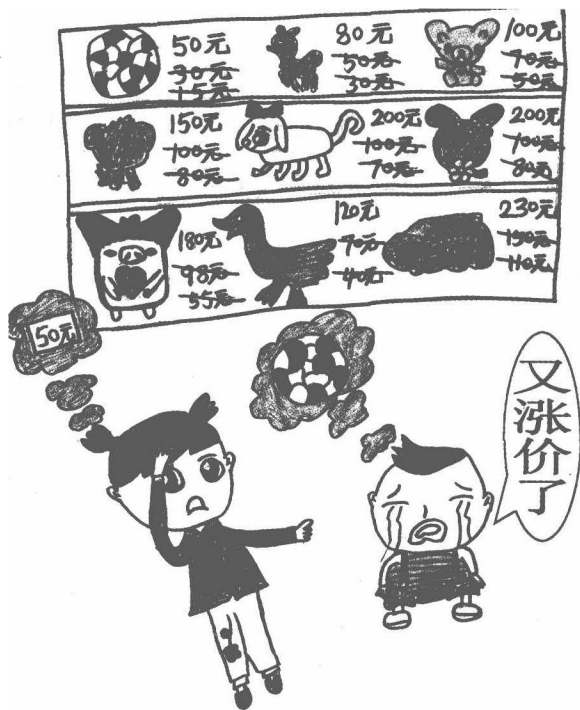 50元
30元
15元
80元
50元
30元
100元
70元
50元
150元
100元
80元
200元
100元
70元
200元
100元
80元
180元
98元
55元
120元
70元
40元
230元
150元
110元
50元
又涨价了